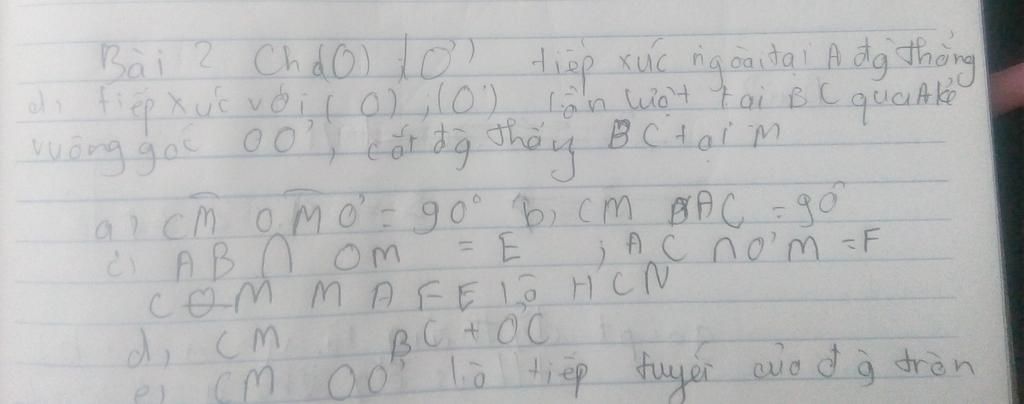 Bài 2 Ch d(O) (O') tiếp xúc ngoài tại A đg thẳng
d, tiếp xúc với (O), (O') lần lượt tại B C qua A kẻ
vuông góc OO', cắt đg thẳng BC tại M
a) CM OMO' = 90° b, CM BAC = 90°
c) AB ∩ OM = E ; AC ∩ O'M = F
CM M A F E là HCN
d, CM BC + O'C
e) CM OO' là tiếp tuyến của đg tròn